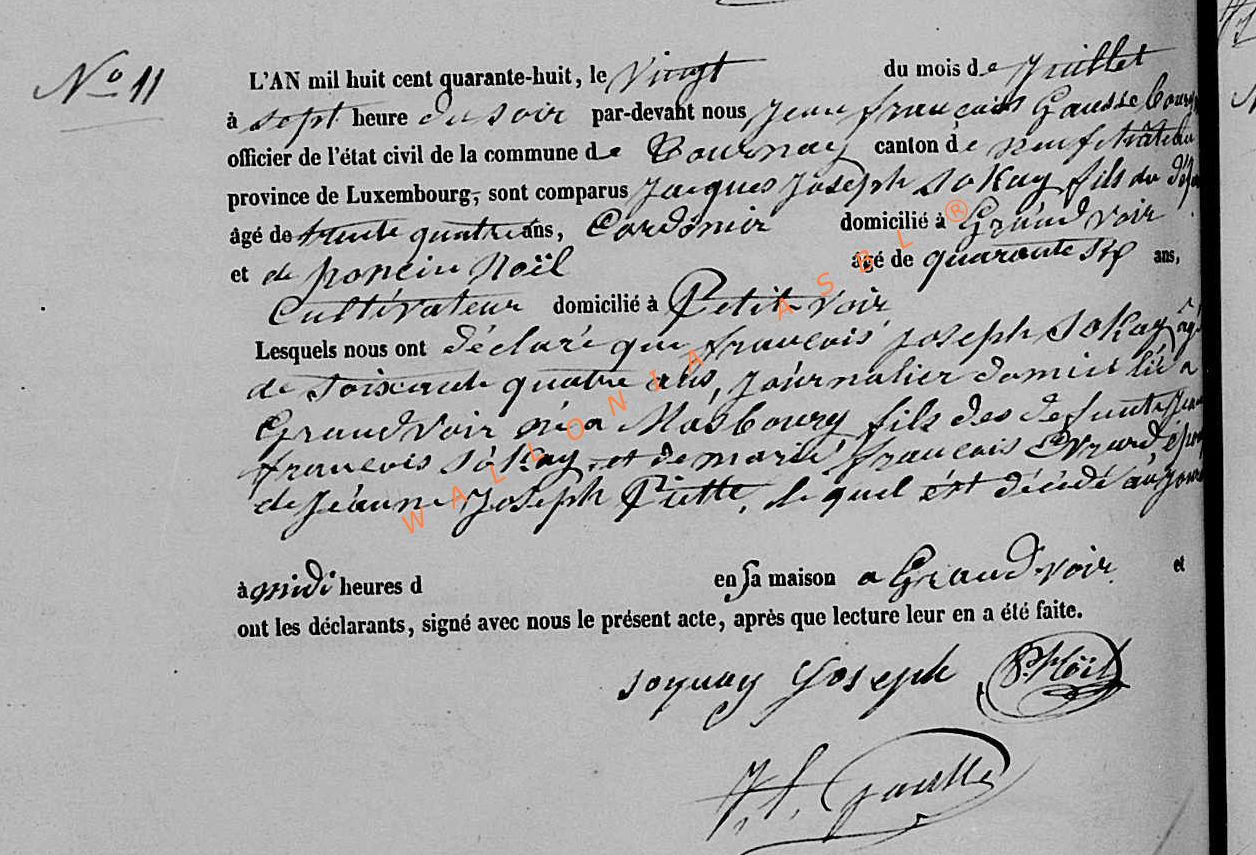 No 11
L'AN mil huit cent quarante-huit, le vingt du mois de Juillet
à sept heure du soir par-devant nous Jean françois Gausse bourg
officier de l'état civil de la commune de Tournay canton de neufchâteau
province de Luxembourg, sont comparus Jacques Joseph soKay fils du déf
âgé de trente quatre ans, Cordonnier domicilié à Grandvoir
et de poncin Noël âgé de quarante six ans,
Cultivateur domicilié à Petitvoir
Lesquels nous ont déclaré que francois joseph soKay âgé
de soixante quatre ans, journalier domicillié a
Grandvoir né a Masbourg fils des defunts Jean
francois soKay et de marie francois Evrard époux
de Jéanne Joseph Piette, lequel est décédé aujourd
à midi heures d en sa maison a Grandvoir et
ont les déclarants, signé avec nous le présent acte, après que lecture leur en a été faite.
soquay Joseph P. Noël
J. f. Gausse
WALLONIA ASBL ®